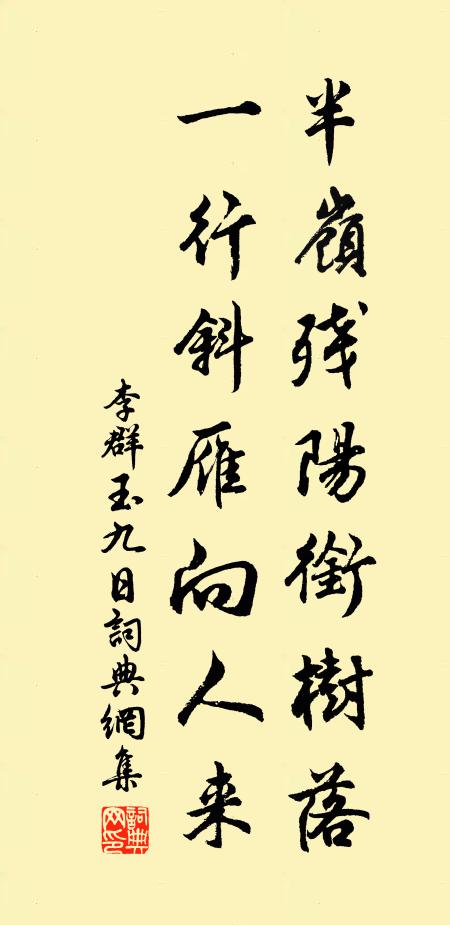 半嶺残陽銜樹落
一行斜雁向人来
李群玉九日詞典網集
詞典网印